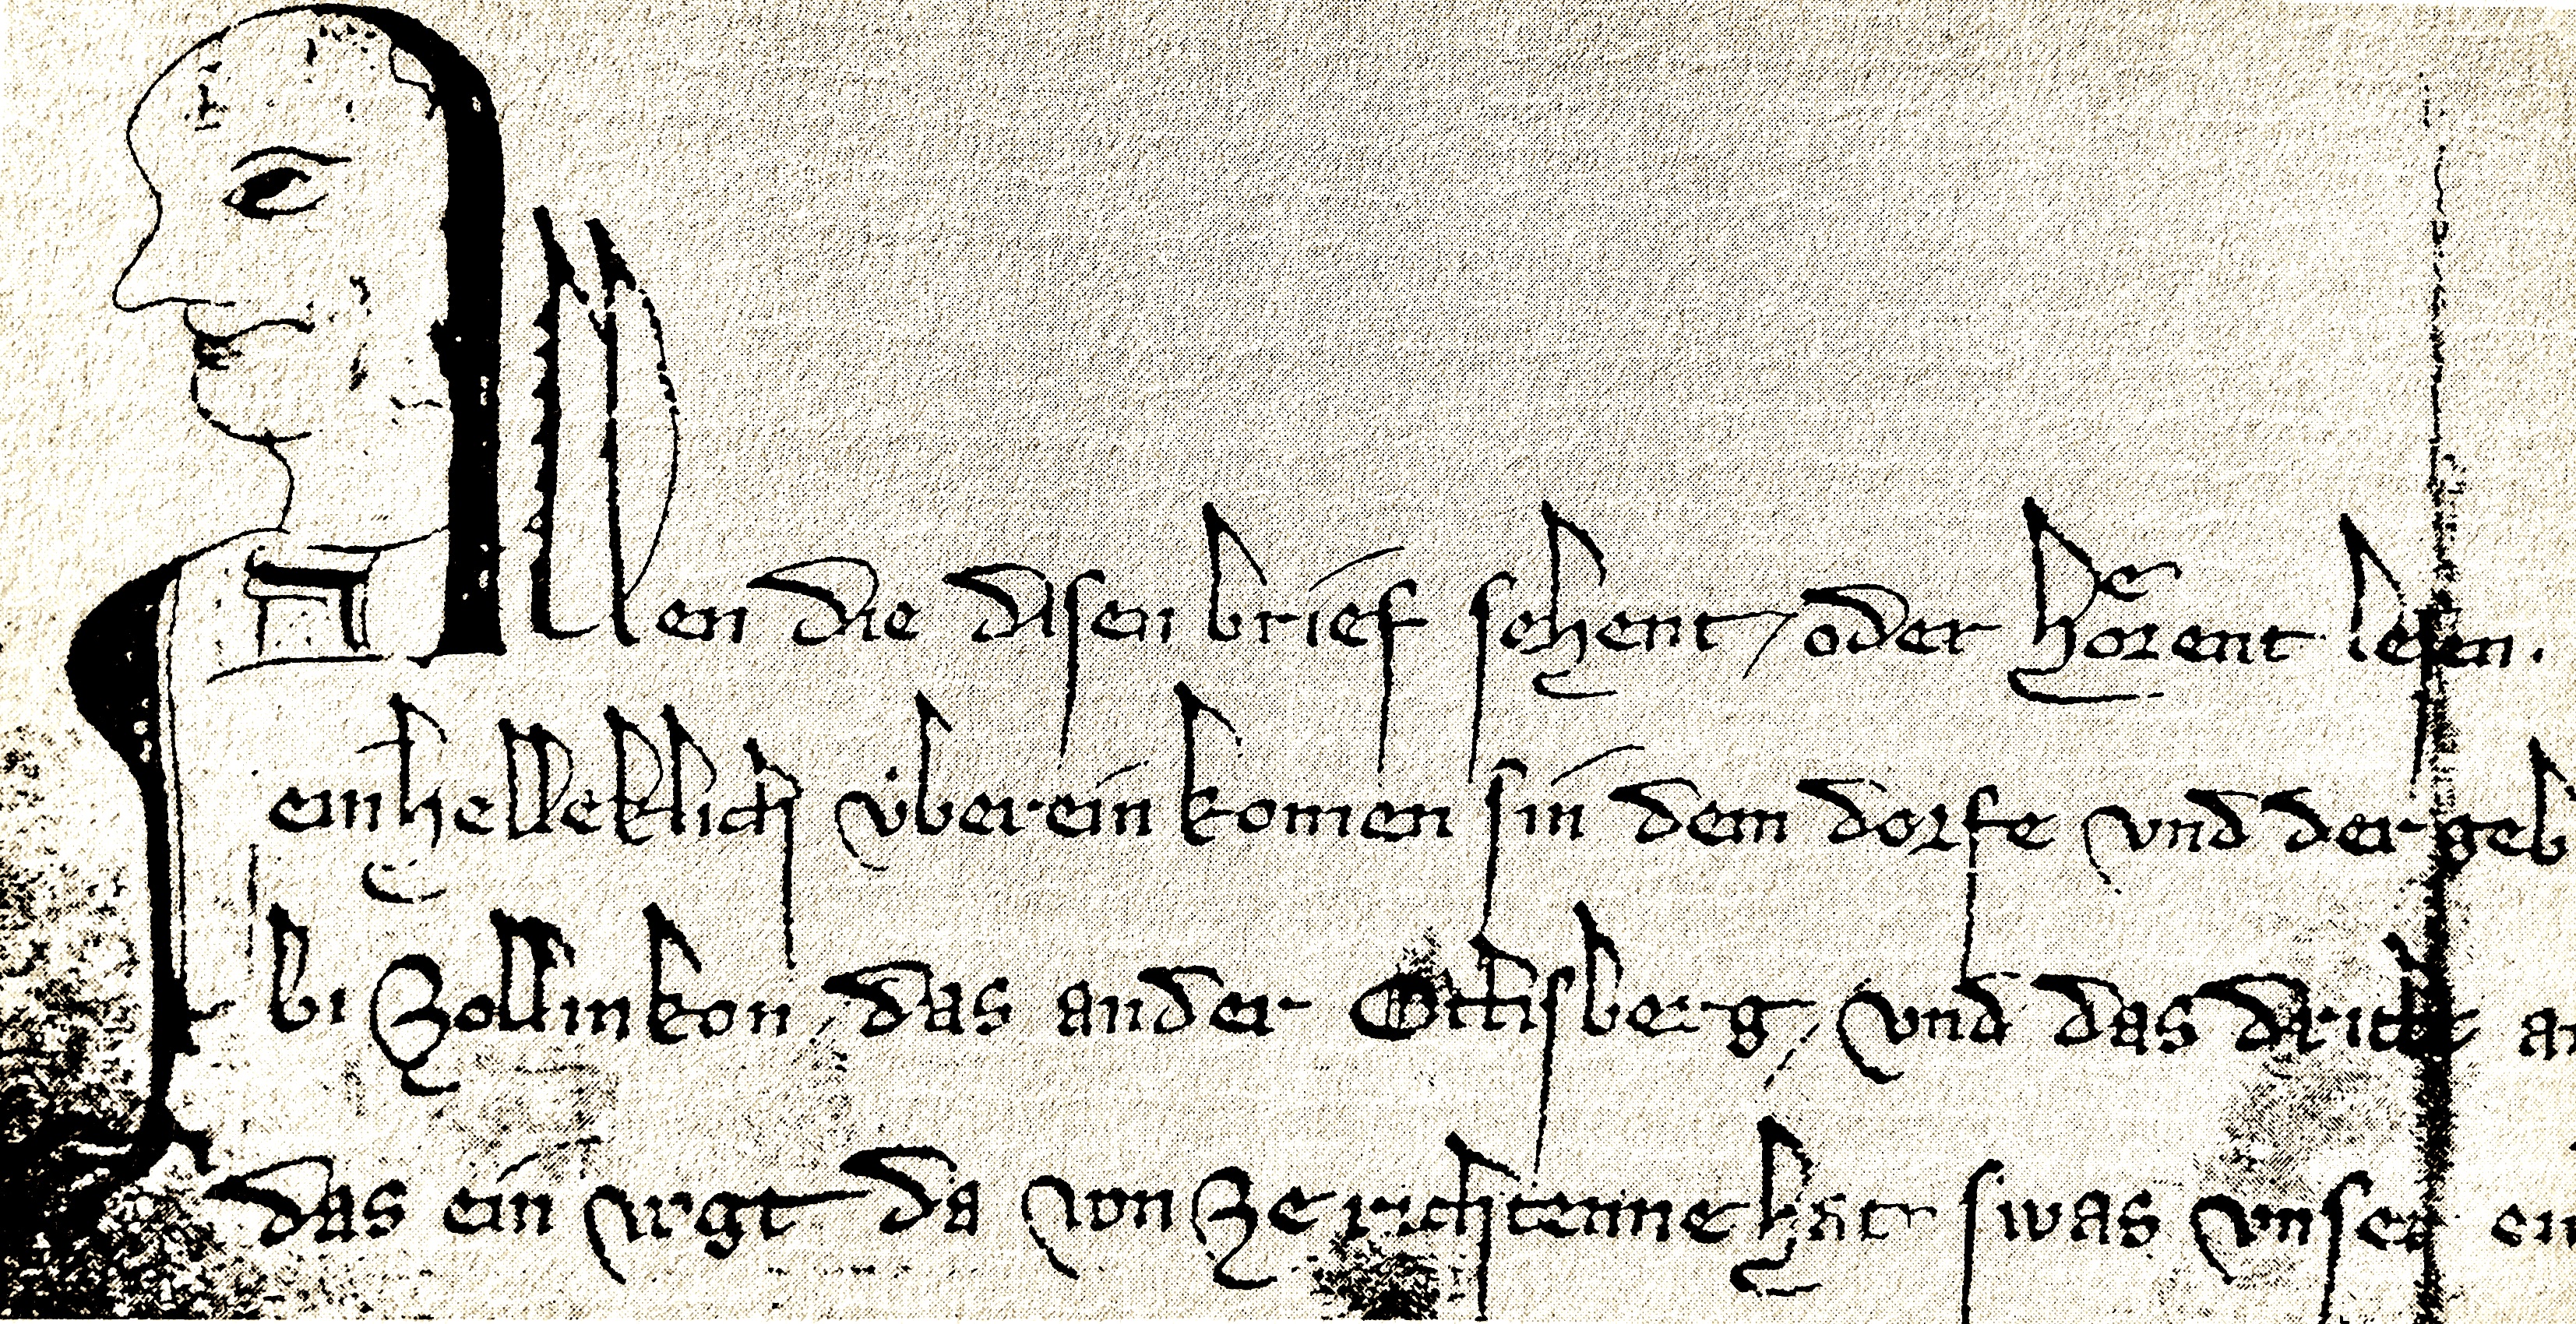 Allen die disen brief sehent / oder hoͤrent lesen.
einhelleklich uͥberein komen sin dem dorfe vnd der geb
bi Zollinkon das ander vnd das dritte
das ein vogt da von ze richtenne hat swas vnser ein